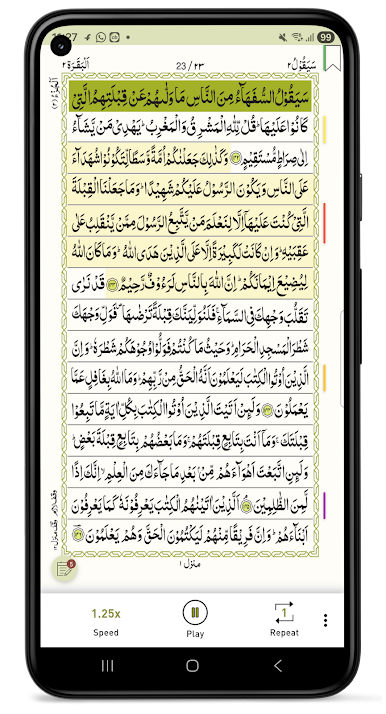 11:27 99
اَلْبَقَرَة ٢ 23 / ٢٣ سَيَقُوْلُ ٢
سَيَقُوْلُ السُّفَهَآءُ مِنَ النَّاسِ مَا وَلّٰىهُمْ عَنْ قِبْلَتِهِمُ الَّتِيْ
كَانُوْا عَلَيْهَا ؕ قُلْ لِّلّٰهِ الْمَشْرِقُ وَالْمَغْرِبُ ؕ يَهْدِيْ مَنْ يَّشَآءُ
اِلٰى صِرَاطٍ مُّسْتَقِيْمٍ ۝ وَكَذٰلِكَ جَعَلْنٰكُمْ اُمَّةً وَّسَطًا لِّتَكُوْنُوْا شُهَدَآءَ
عَلَى النَّاسِ وَيَكُوْنَ الرَّسُوْلُ عَلَيْكُمْ شَهِيْدًا ؕ وَمَا جَعَلْنَا الْقِبْلَةَ
الَّتِيْ كُنْتَ عَلَيْهَآ اِلَّا لِنَعْلَمَ مَنْ يَّتَّبِعُ الرَّسُوْلَ مِمَّنْ يَّنْقَلِبُ عَلٰى
عَقِبَيْهِ ؕ وَاِنْ كَانَتْ لَكَبِيْرَةً اِلَّا عَلَى الَّذِيْنَ هَدَى اللّٰهُ ؕ وَمَا كَانَ اللّٰهُ
لِيُضِيْعَ اِيْمَانَكُمْ ؕ اِنَّ اللّٰهَ بِالنَّاسِ لَرَءُوْفٌ رَّحِيْمٌ ۝ قَدْ نَرٰى
تَقَلُّبَ وَجْهِكَ فِي السَّمَآءِ ۚ فَلَنُوَلِّيَنَّكَ قِبْلَةً تَرْضٰىهَا ۪ فَوَلِّ وَجْهَكَ
شَطْرَ الْمَسْجِدِ الْحَرَامِ ؕ وَحَيْثُ مَا كُنْتُمْ فَوَلُّوْا وُجُوْهَكُمْ شَطْرَهٗ ؕ وَاِنَّ
الَّذِيْنَ اُوْتُوا الْكِتٰبَ لَيَعْلَمُوْنَ اَنَّهُ الْحَقُّ مِنْ رَّبِّهِمْ ؕ وَمَا اللّٰهُ بِغَافِلٍ عَمَّا
يَعْمَلُوْنَ ۝ وَلَئِنْ اَتَيْتَ الَّذِيْنَ اُوْتُوا الْكِتٰبَ بِكُلِّ اٰيَةٍ مَّا تَبِعُوْا
قِبْلَتَكَ ۚ وَمَآ اَنْتَ بِتَابِعٍ قِبْلَتَهُمْ ۚ وَمَا بَعْضُهُمْ بِتَابِعٍ قِبْلَةَ بَعْضٍ ؕ
وَلَئِنِ اتَّبَعْتَ اَهْوَآءَهُمْ مِّنْۢ بَعْدِ مَا جَآءَكَ مِنَ الْعِلْمِ ۙ اِنَّكَ اِذًا
لَّمِنَ الظّٰلِمِيْنَ ۝ اَلَّذِيْنَ اٰتَيْنٰهُمُ الْكِتٰبَ يَعْرِفُوْنَهٗ كَمَا يَعْرِفُوْنَ
اَبْنَآءَهُمْ ؕ وَاِنَّ فَرِيْقًا مِّنْهُمْ لَيَكْتُمُوْنَ الْحَقَّ وَهُمْ يَعْلَمُوْنَ ۝
منزل ١
5
1.25x 1
Speed Play Repeat